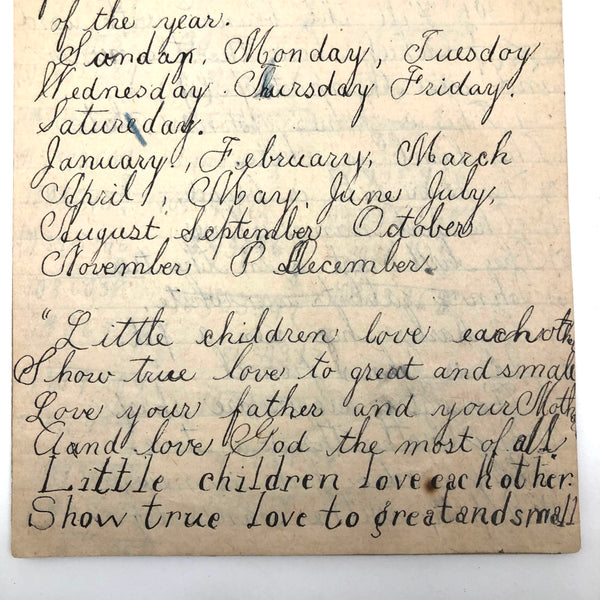 of the year.
Sunday, Monday, Tuesday
Wednesday Thursday Friday.
Satureday.
January, February, March
April, May, June July,
August, September October
November P December.
"Little children love each oth
Show true love to great and small
Love your father and your Moth
Aand love God the most of all.
Little children love each other.
Show true love to great and small